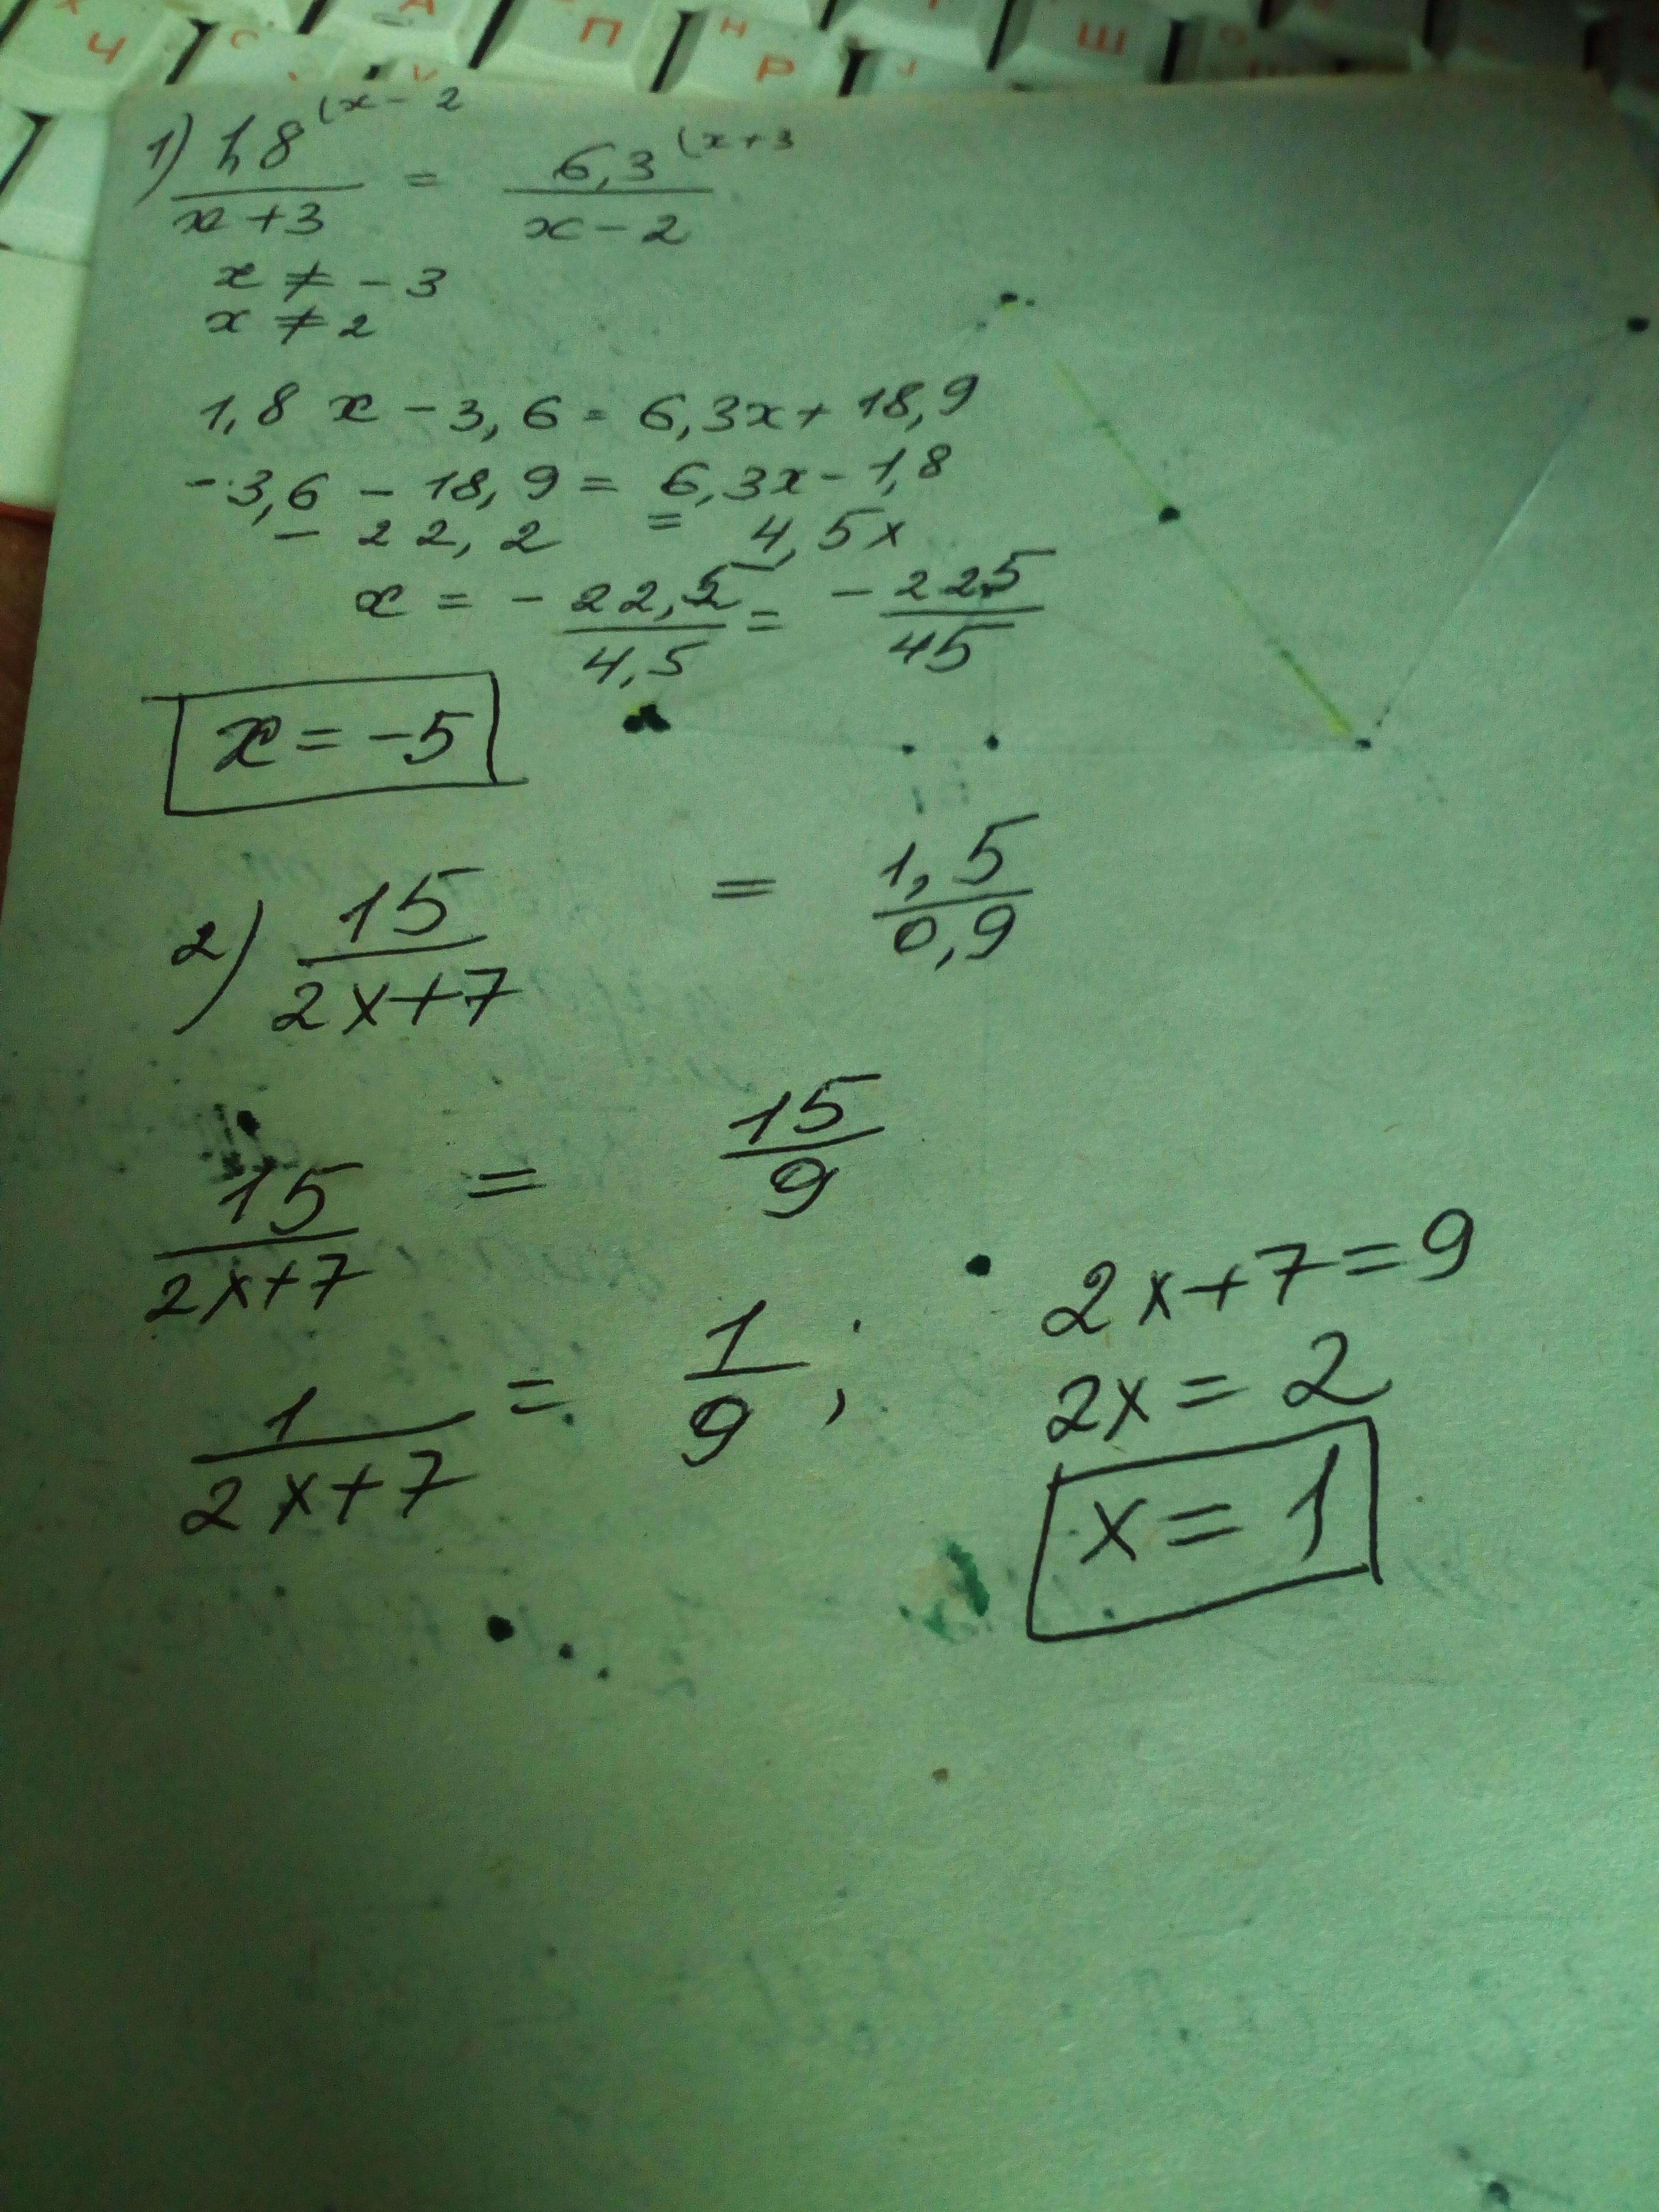 Ч С П Н Р Ш
1) 1,8 (x - 2 / x + 3 = 6,3 (x + 3 / x - 2
x ≠ - 3
x ≠ 2
1,8 x - 3,6 = 6,3x + 18,9
- 3,6 - 18,9 = 6,3x - 1,8
- 22,2 = 4,5x
x = - 22,5 / 4,5 = - 225 / 45
x = -5
2) 15 / 2x+7 = 1,5 / 0,9
15 / 2x+7 = 15 / 9
1 / 2x+7 = 1 / 9 ;
2x+7=9
2x = 2
x = 1